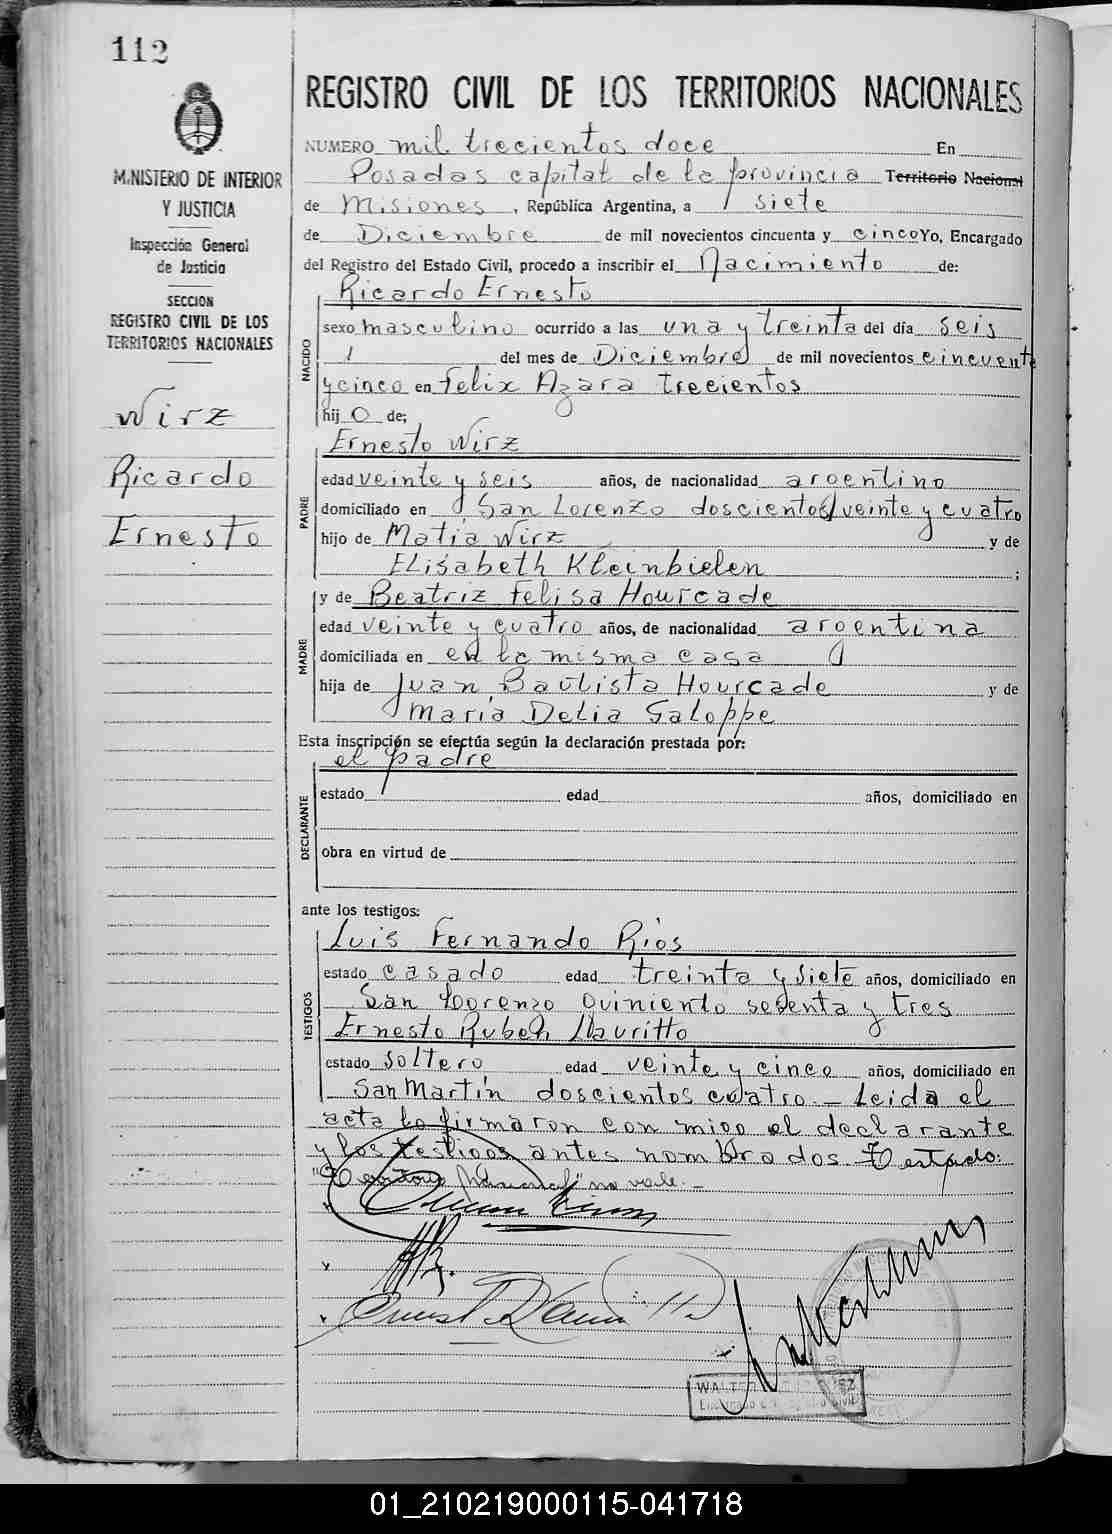 112
MINISTERIO DE INTERIOR
Y JUSTICIA
Inspección General
de Justicia
SECCION
REGISTRO CIVIL DE LOS
TERRITORIOS NACIONALES
Wirz
Ricardo
Ernesto
REGISTRO CIVIL DE LOS TERRITORIOS NACIONALES
NUMERO mil trecientos doce En
Posadas capital de la provincia Territorio Nacional
de Misiones, República Argentina, a siete
de Diciembre de mil novecientos cincuenta y cinco Yo, Encargado
del Registro del Estado Civil, procedo a inscribir el Nacimiento de:
NACIDO
Ricardo Ernesto
sexo masculino ocurrido a las una y treinta del día seis
del mes de Diciembre de mil novecientos cincuenta
y cinco en Felix Azara trecientos
hij o de;
PADRE
Ernesto Wirz
edad veinte y seis años, de nacionalidad argentino
domiciliado en San Lorenzo doscientos veinte y cuatro
hijo de Matia Wirz y de
Elisabeth Kleinbielen ;
MADRE
y de Beatriz Felisa Hourcade
edad veinte y cuatro años, de nacionalidad argentina
domiciliada en en la misma casa
hija de Juan Bautista Hourcade y de
María Delia Galoppe
Esta inscripción se efectúa según la declaración prestada por:
DECLARANTE
el padre
estado edad años, domiciliado en
obra en virtud de
ante los testigos:
TESTIGOS
Luis Fernando Ríos
estado casado edad treinta y siete años, domiciliado en
San Lorenzo quiniento sesenta y tres
Ernesto Ruben Mauritto
estado soltero edad veinte y cinco años, domiciliado en
San Martín doscientos cuatro.- Leida el
acta la firmaron con migo el declarante
y los testigos antes nombrados. Testado:
"Territorio Nacional" no vale.-
WALTER
Encargado Civil
01_210219000115-041718